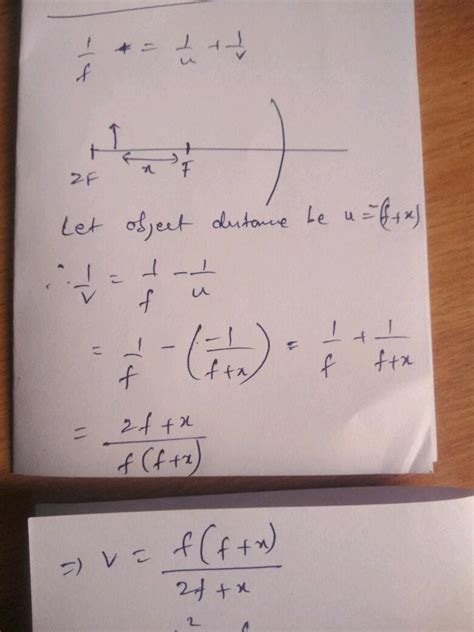 1/f = 1/u + 1/v
2F x F
Let object distance be u = -(f+x)
∴ 1/v = 1/f - 1/u
= 1/f - (-1/(f+x)) = 1/f + 1/(f+x)
= (2f+x)/(f(f+x))
=> v = f(f+x)/(2f+x)